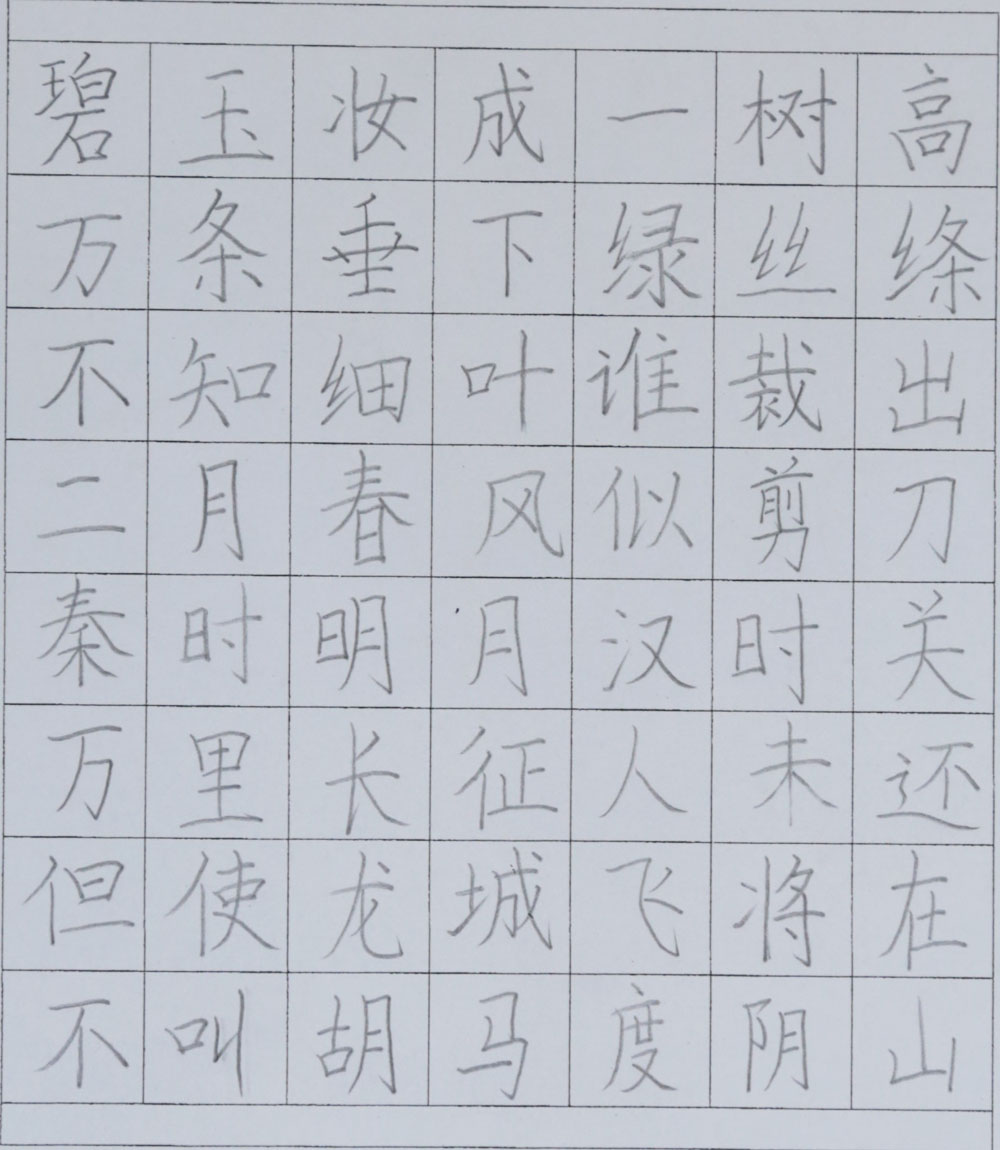 碧玉妆成一树高
万条垂下绿丝绦
不知细叶谁裁出
二月春风似剪刀
秦时明月汉时关
万里长征人未还
但使龙城飞将在
不叫胡马度阴山